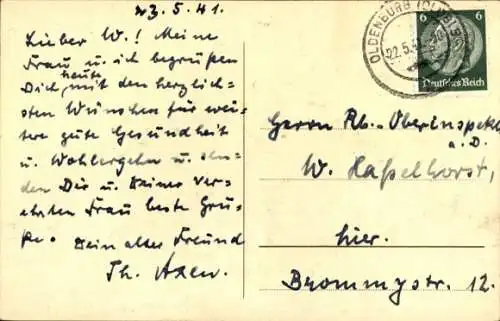 23.5.41.
Lieber W.! Meine
Frau u. ich begrüßen
Dich heute mit den herzlich-
sten Wünschen für wei-
tere gute Gesundheit
u. Wohlergehn u. sen-
den Dir u. Deiner ver-
ehrten Frau beste Grü-
ße. Dein alter Freund
Th. Axen.
OLDENBURG (OLDB)
22.5.
6 6
Deutsches Reich
Herrn Rb.-Oberinspekt.
a.D.
W. Haßelhorst,
hier.
Brommystr. 12.